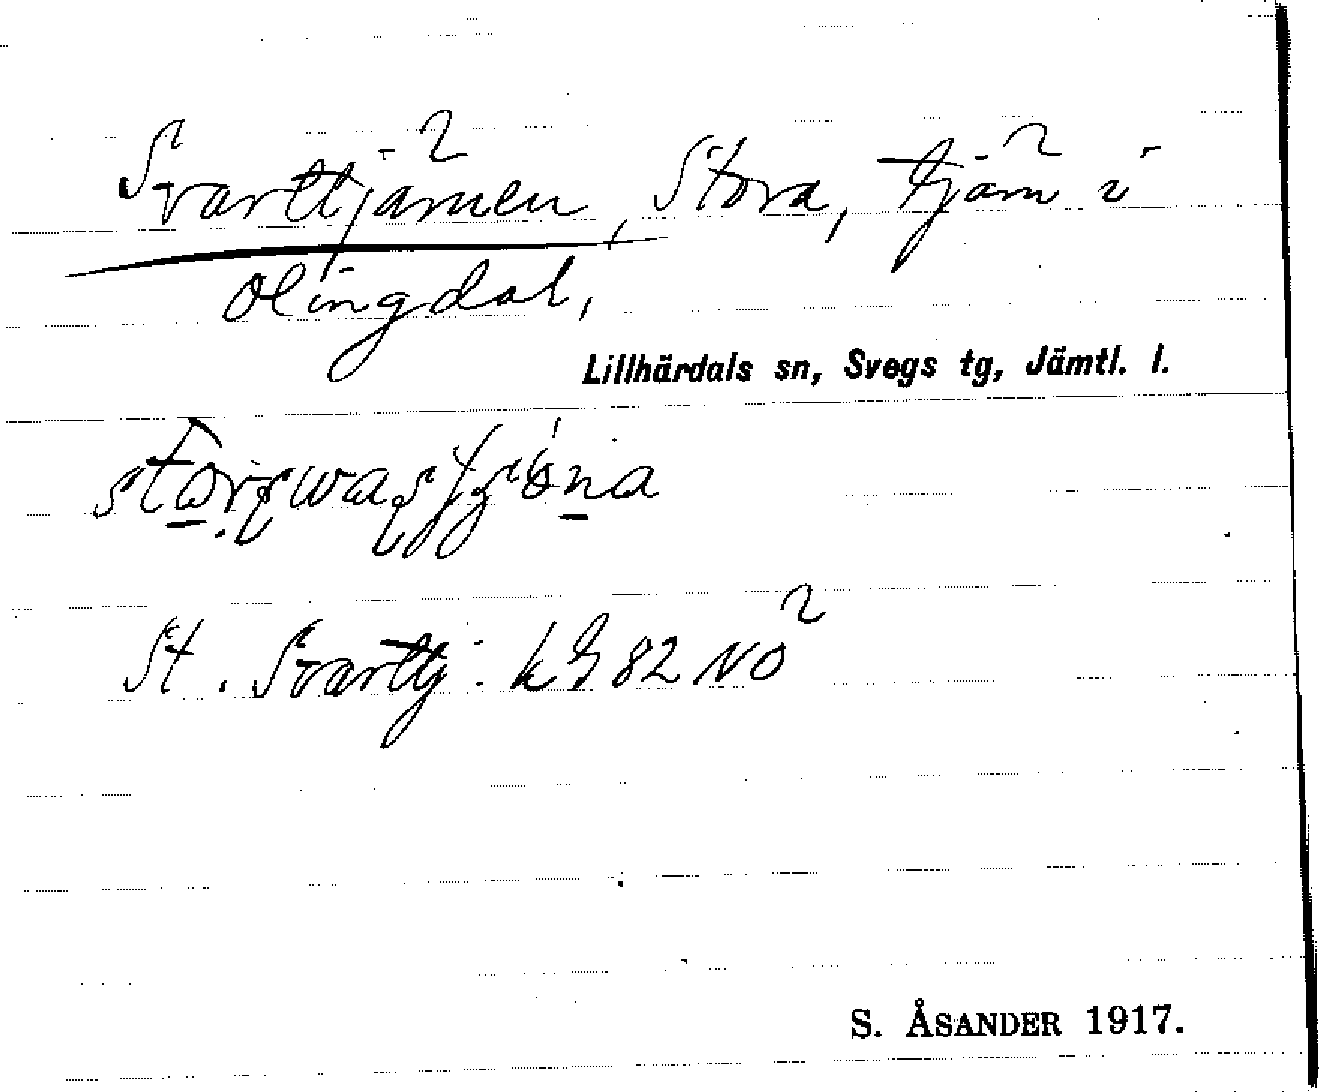 Svarttjärnen, Stora, tjärn i
Olingdal,
Lillhärdals sn, Svegs tg, Jämtl. l.
St. Svarttj: k 82 NO
S. ÅSANDER 1917.